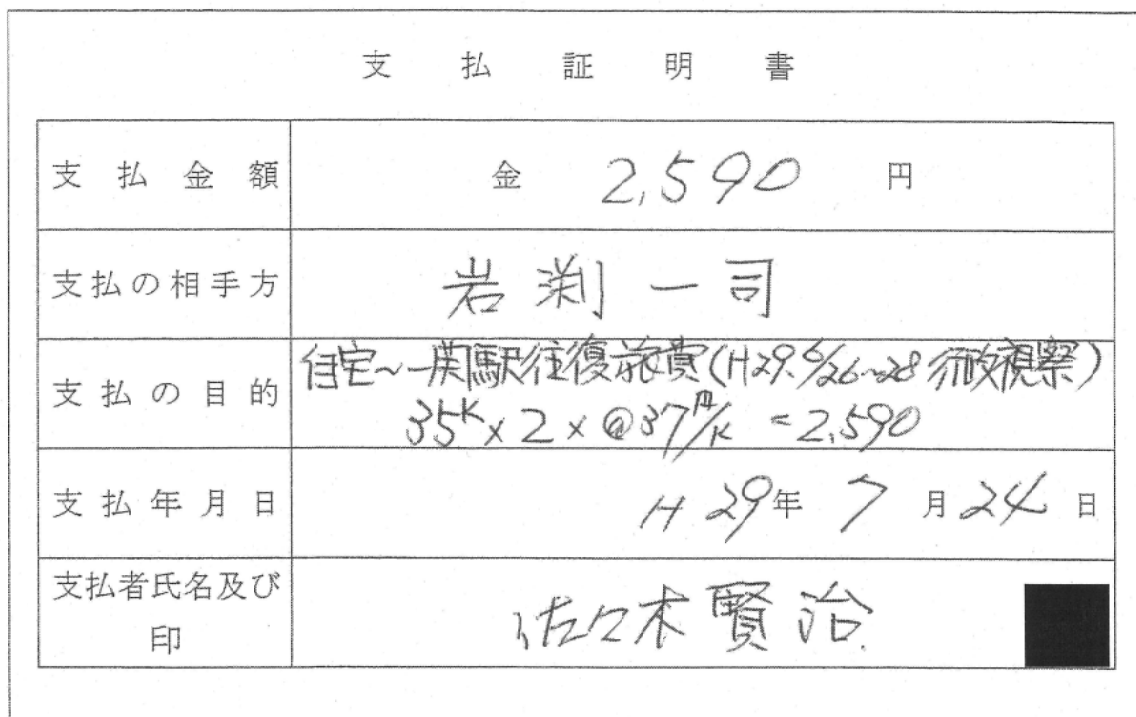 支払証明書
支払金額 金 2,590 円
支払の相手方 岩渕一司
支払の目的 自宅~一関駅往復旅費(H29.6/26~28 行政視察)
35K×2×@37円/K=2,590
支払年月日 H29年 7月24日
支払者氏名及び 佐々木賢治
印